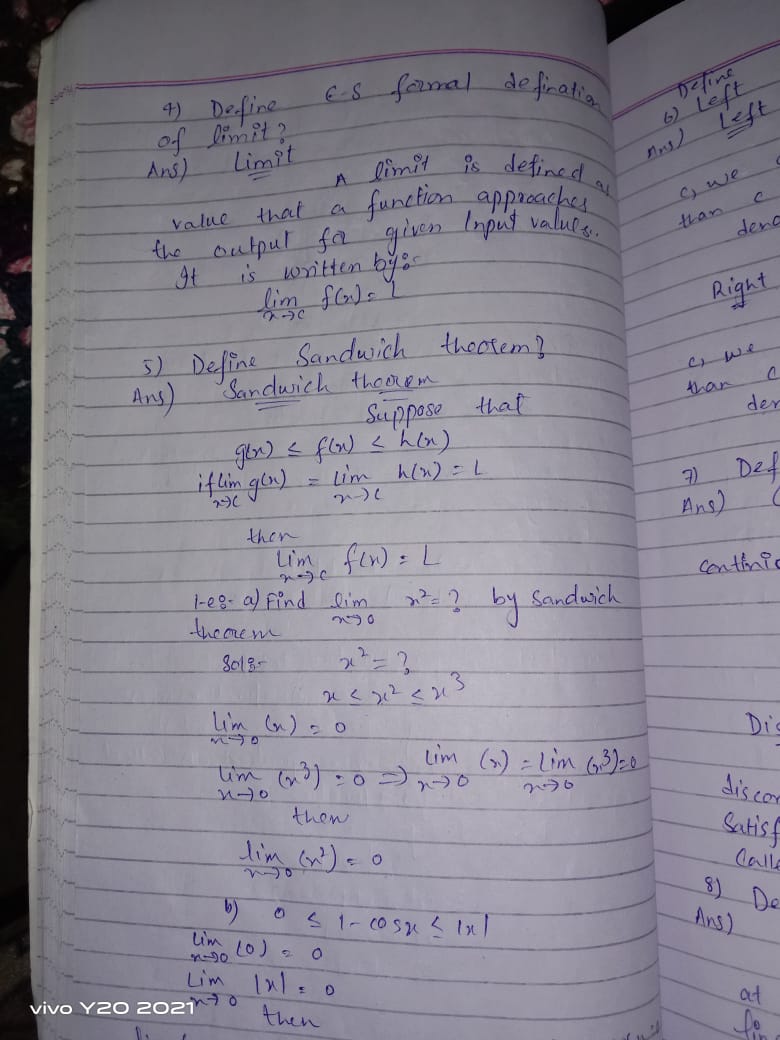 4) Define ε-δ formal defination
of limit?
Ans) Limit
A limit is defined as
value that a function approaches
the output for given Input values.
It is written by:-
lim f(x) = L
x→c
5) Define Sandwich theorem?
Ans) Sandwich theorem
Suppose that
g(x) ≤ f(x) ≤ h(x)
if lim g(x) = lim h(x) = L
x→c x→c
then
lim f(x) = L
x→c
1-eg:- a) Find lim x² = ? by Sandwich
x→0
theorem
Sol:- x² = ?
x ≤ x² ≤ x³
lim (x) = 0
x→0
lim (x³) = 0 ⇒ lim (x) = lim (x³) = 0
x→0 x→0 x→0
then
lim (x²) = 0
x→0
b) 0 ≤ 1-cosx ≤ |x|
lim (0) = 0
x→0
Lim |x| = 0
x→0
then
Define
6) Left
Ans) Left
c, we
than c
deno
Right
c, we
than c
den
7) Def
Ans)
Contini
Dis
discon
Satisf
Calle
8) De
Ans)
at
vivo Y20 2021